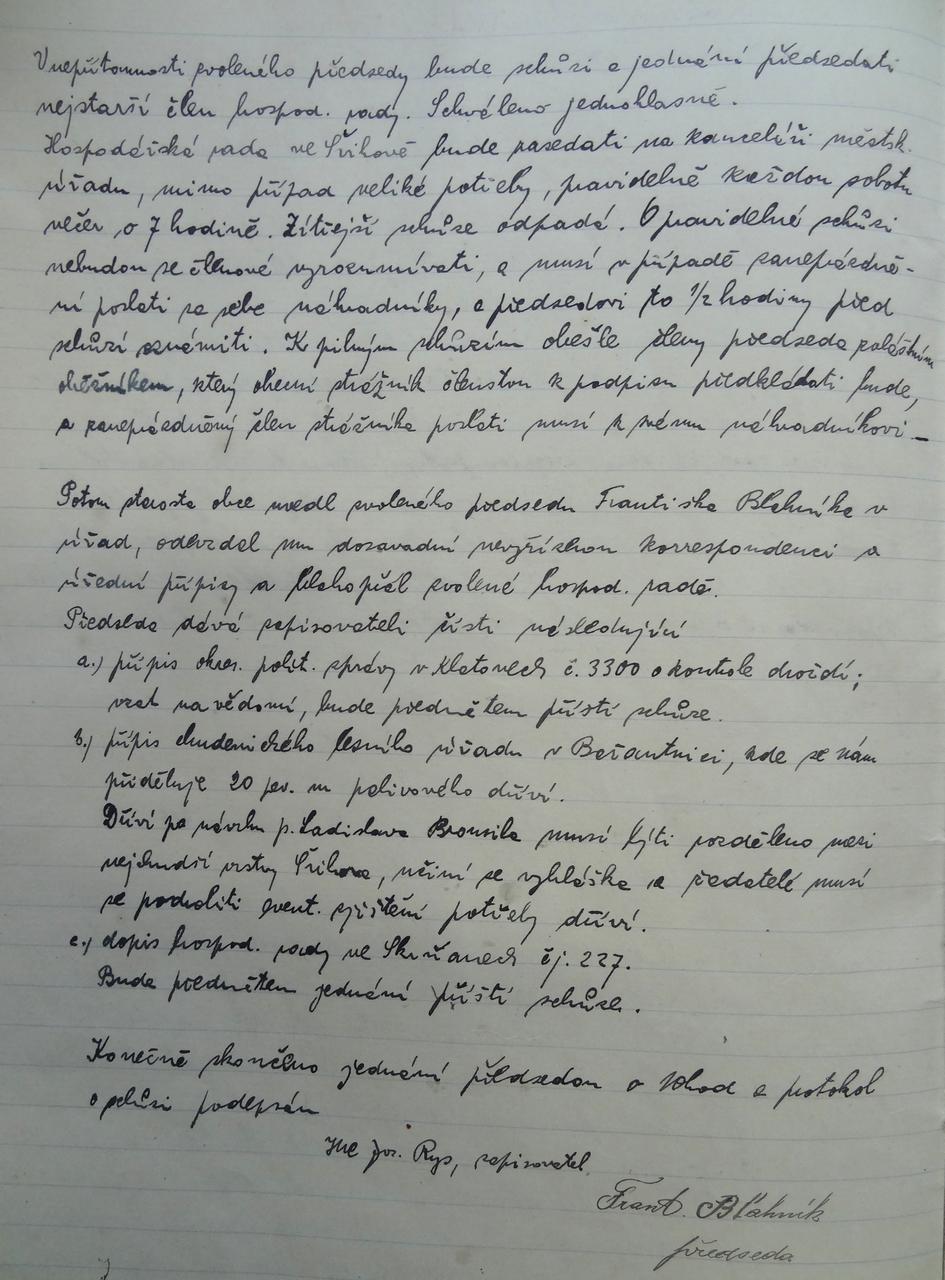 V nepřítomnosti zvoleného předsedy bude schůzi a jednání předsedati
nejstarší člen hospod. rady. Schváleno jednohlasně.
Hospodářská rada ve Švihově bude zasedati na kanceláři městsk.
úřadu, mimo případ veliké potřeby, pravidelně každou sobotu
večer o 7 hodině. Zítřejší schůze odpadá. O pravidelné schůzi
nebudou se členové vyrozumívati, a musí v případě zaneprázdně-
ní poslati za sebe náhradníky, a předsedovi to 1/2 hodiny před
schůzí oznámiti. K pilným schůzím obešle členy předseda zvláštním
oběžníkem, který obecní strážník členstvu k podpisu předkládati bude,
a zaneprázdněný člen strážníka poslati musí k svému náhradníkovi. –
Potom starosta obce uvedl zvoleného předsedu Františka Blahníka v
úřad, odevzdal mu dosavadní nevyřízenou korrespondenci a
úřední přípisy a blahopřál zvolené hospod. radě.
Předseda dává zapisovateli čísti následující
a.) přípis okres. polit. správy v Klatovech č. 3300 o kontrole droždí;
vzat na vědomí, bude předmětem příští schůze.
b.) přípis chudenického lesního úřadu v Bažantnici, kde se nám
přiděluje 20 pev. m palivového dříví.
Dříví po návrhu p. Ladislava Brousila musí býti rozděleno mezi
nejchudší vrstvy Švihova, učiní se vyhláška a žadatelé musí
se podvoliti event. zjištění potřeby dříví.
c.) dopis hospod. rady ve Skočanech čj. 227.
Bude předmětem jednání příští schůze.
Konečně skončeno jednání předsedou o 10hod a protokol
o schůzi podepsán
Jos. Rys, zapisovatel.
Frant. Blahník
předseda